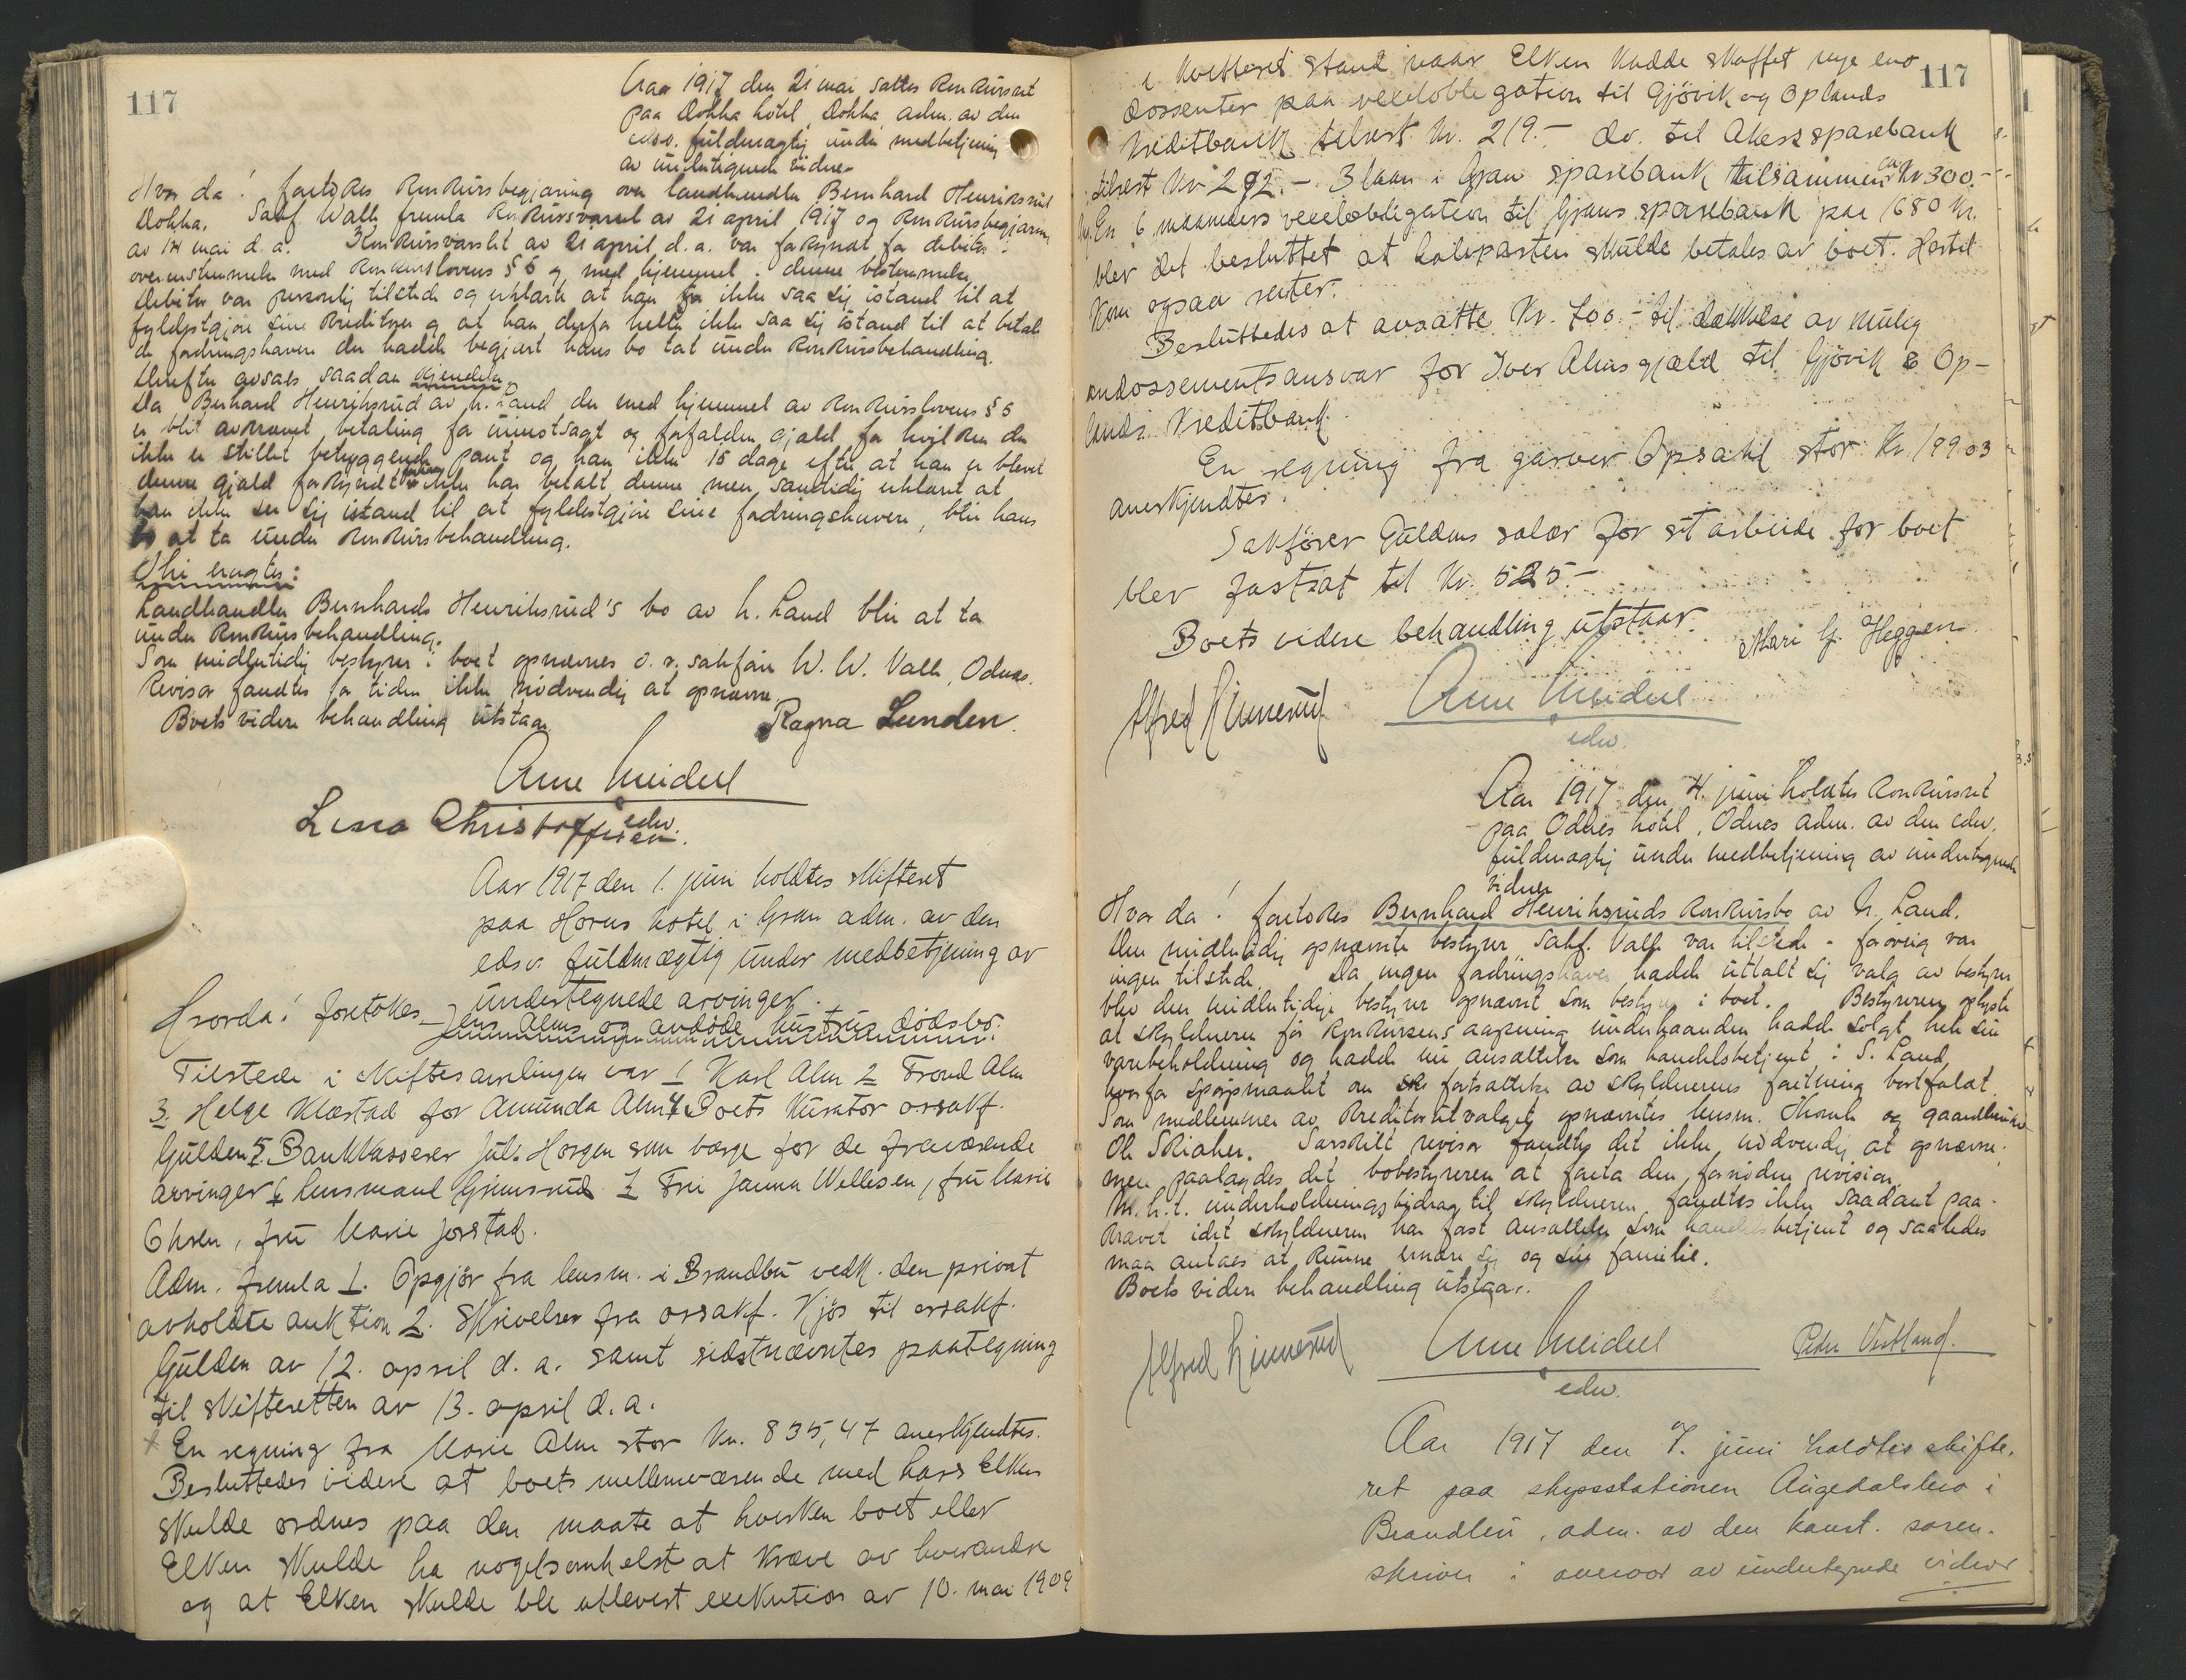 117
Aar 1917 den 21 mai sattes konkursret
paa Dokka hotel, Dokka adm. av den
edsv. fuldmægtig under medbetjening
av undertegnede vidner
Hvor da! foretokes konkursbegjæring over landhandler Bernhard Henriksrud
Dokka. Sakf. Valle fremla konkursvarsel av 21 april 1917 og konkursbegjæring
av 14 mai d.a. Konkursvarslet av 21 april d.a. var forkyndt for debitor i
overensstemmelse med konkurslovens § 5 og med hjemmel i denne bestemmelse
Debitor var personlig tilstede og erklærte at han ikke saa sig istand til at
fyldestgjøre sine kreditorer og at han derfor heller ikke saa sig istand til at betale
de fordringshavere der hadde begjært hans bo tat under konkursbehandling.
Derefter avsaes saadan kjendelse
Da Bernhard Henriksrud av N. Land der med hjemmel av konkurslovens § 5
er blit avkrævet betaling for uimotsagt og forfalden gjæld for hvilken der
ikke er stillet betryggende pant og han ikke 15 dage efter at han er blevet
denne gjæld forkyndt ikke har betalt denne men samtidig erklært at
han ikke ser sig istand til at fyldestgjøre sine fordringshavere, blir hans
bo at ta under konkursbehandling.
Thi eragtes:
Landhandler Bernhards Henriksrud's bo av N. Land blir at ta
under konkursbehandling.
Som midlertidig bestyrer i boet opnævnes o.r.sakfører W. W. Valle, Odnes.
Revisor fandtes for tiden ikke nødvendig at opnævne.
Boets videre behandling utstaar.
Ragna Lunden.
Arne Meidell
edsv.
Lina Christoffersen.
Aar 1917 den 1. juni holdtes skifteret
paa Horns hotel i Gran adm. av den
edsv. fuldmægtig under medbetjening av
undertegnede arvinger.
Hvorda! foretokes Jens Alms og avdøde hustrus dødsbo.
Tilstede i skiftesamlingen var 1 Karl Alm 2 Trond Alm
3. Helge Klæstad for Amunda Alm 4 Boets kurator orsakf.
Gulden 5. Bankkasserer Jul. Horgen som værge for de fraværende
arvinger 6 lensmand Grimsrud 7 Fru Janna Wellesen, fru Marie
Ohren, fru Marie Jorstad.
Adm. fremla 1. Opgjør fra lensm. i Brandbu vedk. den privat
avholdte auktion 2. Skrivelser fra orsakf. Kjøs til orsakf.
Gulden av 12. april d.a. samt sidstnævntes paategning
til skifteretten av 13. april d.a.
En regning fra Marie Alm stor kr. 835,47 anerkjendtes.
Besluttedes videre at boets mellemværende med Lars Elken
skulde ordnes paa den maate at hverken boet eller
Elken skulde ha nogetsomhelst at kræve av hverandre
og at Elken skulde ble utlevert exekution av 10. mai 1909
117
i kvitteret stand naar Elken hadde skaffet nye en-
dossenter paa vexelobligation til Gjøvik og Oplands
Kreditbank tilrest kr. 219.- do. til Akers sparebank
tilrest kr. 292.- 3 laan i Gran sparebank tilsammen ca kr 300.-
En 6 maaneders vexelobligation til Grans sparebank paa 1680 kr.
blev det besluttet at halvparten skulde betales av boet. Hertil
kom ogsaa renter.
Besluttedes at avsætte kr. 700.- til dækkelse av mulig
endossementsansvar for Iver Alms gjæld til Gjøvik & Op-
lands Kreditbank.
En regning fra garver Opsahl stor kr. 199.03
anerkjendtes.
Sakfører Guldens salær for sit arbeide for boet
blev fastsat til kr. 525.-
Boets videre behandling utstaar.
Mari G. Heggen
Alfred Linnerud
Arne Meidell
edsv.
Aar 1917 den 4. juni holdtes konkursret
paa Odnes hotel, Odnes adm. av den edsv.
fuldmægtig under medbetjening av undertegnede
vidner
Hvor da! foretokes Bernhard Henriksruds konkursbo av N. Land.
Den midlertidig opnævnte bestyrer Sakf. Valle var tilstede - forøvrig var
ingen tilstede. Da ingen fordringshaver hadde uttalt sig valg av bestyrer
blev den midlertidige bestyrer opnævnt som bestyrer i boet. Bestyreren oplyste
at skyldneren før konkursens aapning underhaanden hadde solgt hele sin
varebeholdning og hadde nu ansættelse som handelsbetjent i S. Land
hvorfor spørsmaalet om fortsættelse av skyldnerens forretning bortfaldt.
Som medlemmer av kreditorutvalget opnævntes lensm. Thomle og gaardbruker
Ole Skiaker. Særskilt revisor fandtes det ikke nødvendig at opnævne;
men paalagdes det bobestyreren at foreta den fornødne revision.
M.h.t. underholdningsbidrag til skyldneren fandtes ikke saadant paa-
krævet idet skyldneren har fast ansættelse som handelsbetjent og saaledes
maa antaes at kunne ernære sig og sin familie.
Boets videre behandling utstaar.
Alfred Linnerud
Arne Meidell
edsv.
Peder Vestland.
Aar 1917 den 7. juni holdtes skifte-
ret paa skysstationen Augedalsbro i
Brandbu, adm. av den konst. soren-
skriver i overvær av undertegnede vidner